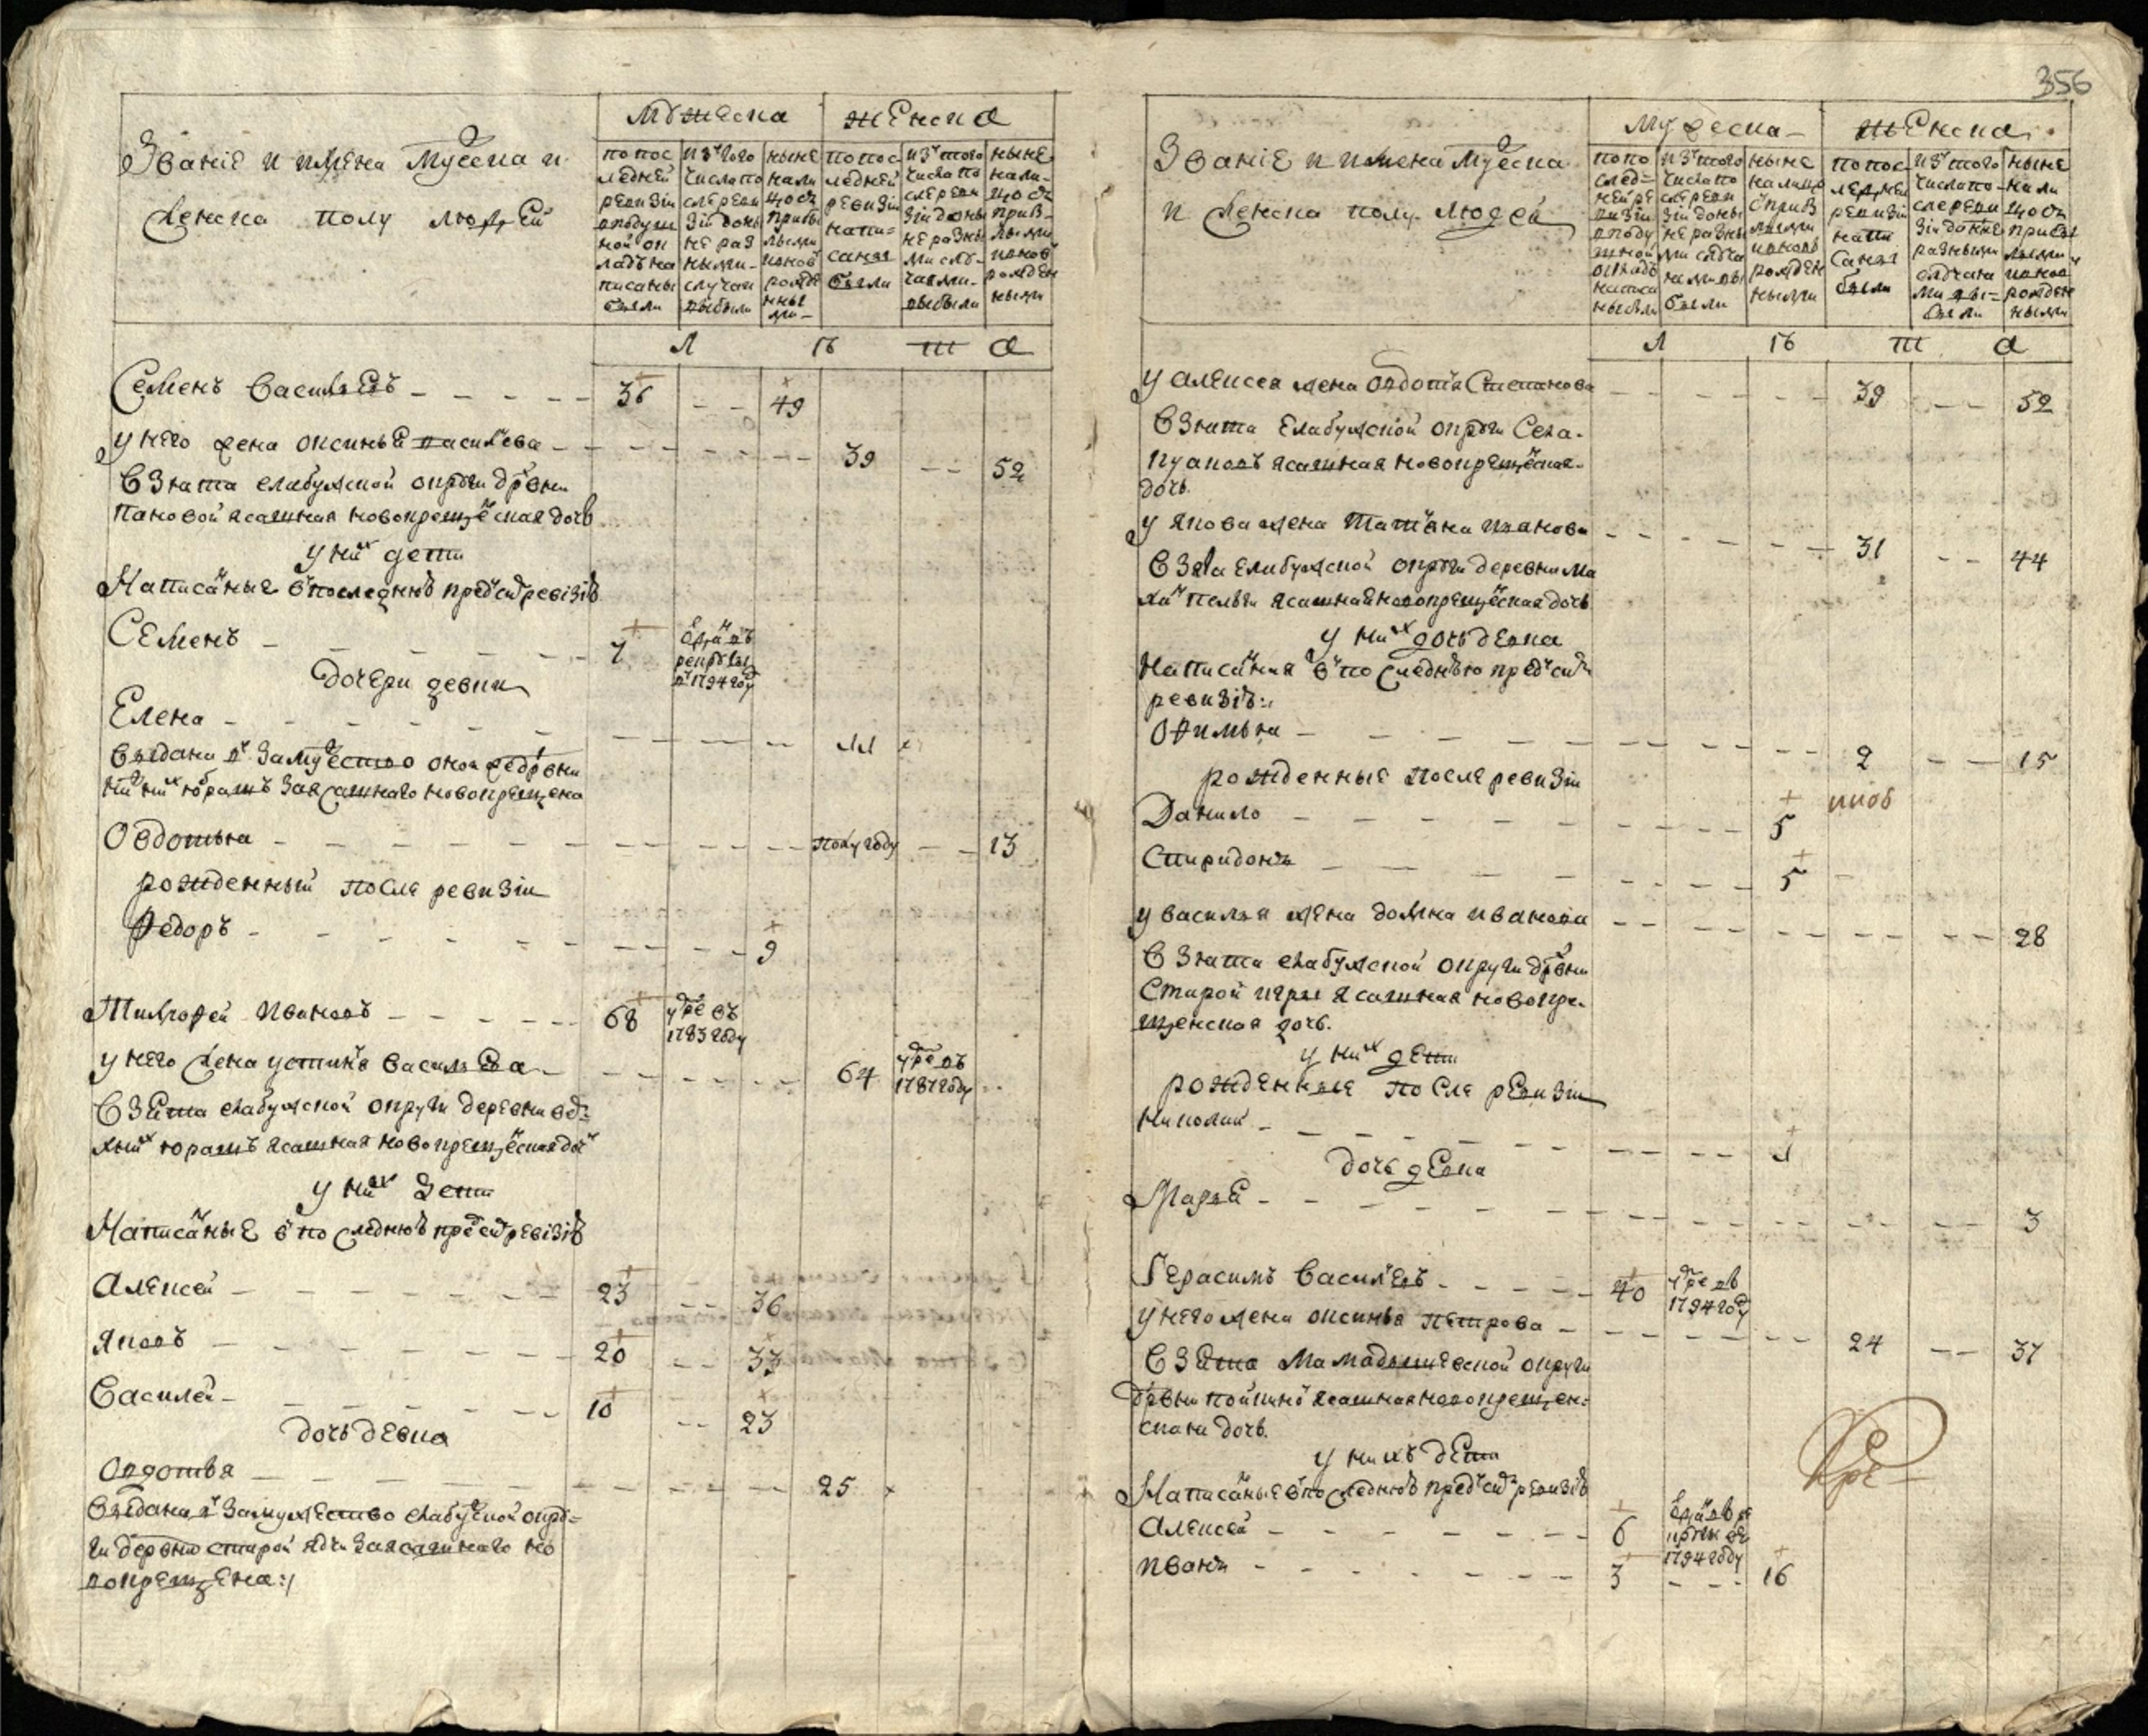 356
Званіе и имена Мужеска и
женска полу людей
Мужеска
женска
по пос
ледней
ревизіи
в подуш
ной ок
ладъ на
писаны
были
из того
числа по
сле реви
зіи до ны
не раз
ными
случаи
выбыли
ныне
нали
цо съ
прибы
лыми
и нов
рожде
нны
ми
по пос
ледней
ревизіи
напи=
саны
были
из того
числа по
сле реви
зіи до ны
не разны
ми слу-
чаями
выбыли
ныне
нали-
цо съ
приб-
лыми
и нов
рожден
ными
Л Ѣ Т А
Семенъ Васильевъ 36 49
у него жена Оксинья Васильева 39 52
взята елабужской округи дрвни
Пановой ясашная новокрещенская дочь
у них дети
Написаные в последнюю пред сию ревизію
Семенъ 7 в 1794 году
дочери девки
Елена 11
выдана в замужество оной же дрвни
за ясашнаго новокрещена
Овдотья полугоду 13
рожденный после ревизіи
Федоръ 9
Тимофей Ивановъ 68 умре въ 1783 году
у него жена Устинья Васильева 64 умре въ 1787 году
взята елабужской округи деревни
юрашъ ясашная новокрещенская дочь
у них дети
Написаные в последнюю пред сию ревизію
Алексей 23 36
Яковъ 20 33
Василей 10 23
дочь девка
Овдотья 25
выдана в замужество елабужской окру=
ги деревню старой за ясашнаго но
вокрещена:/
Званіе и имена Мужеска
и женска полу людей
Мужеска
женска
по по
след=
ней ре
визіи
в поду
шной
окладъ
написа
ны были
из того
числа по
сле реви
зіи до ны
не разны
ми случа
ями вы
были
ныне
налицо
с приб
лыми
и новь
рожден
ными
по пос
ледней
ревизіи
напи
саны
были
из того
числа по-
сле реви
зіи до нне
разными
случая
ми вы=
были
ныне
нали
цо съ
прибы
лыми
и нов
рожден
ными
Л Ѣ Т А
у Алексея жена Овдотья Степанова 39 52
взята Елабужской округи Села
ясашная новокрещенская
дочь
у Якова жена Татьяна Иванова 31 44
взята Елабужской округи деревни
ясашная новокрещенская дочь
у них дочь девка
Написаная в последнюю пред сию
ревизію:
Офимья 2 15
рожденные после ревизіи
Данило 5
Спиридонъ 5
у Василья жена Домна Иванова 28
взята елабужской округи дрвни
Старой Игры ясашная новокре
щенская дочь.
у них дети
рожденные после ревизіи
Николай 1
дочь девка
Марья 3
Герасимъ Васильевъ 40 умре въ 1794 году
у него жена Оксинья Петрова 24 37
взята Мамадышевской округи
дрвни ясашная новокрещен=
ская дочь.
у нихъ дети
Написаные в последнюю пред сию ревизію
Алексей 6 1794 году
Иванъ 3 16